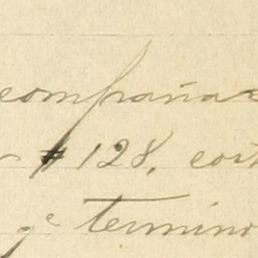 compañia
# 128, cort
ge termino